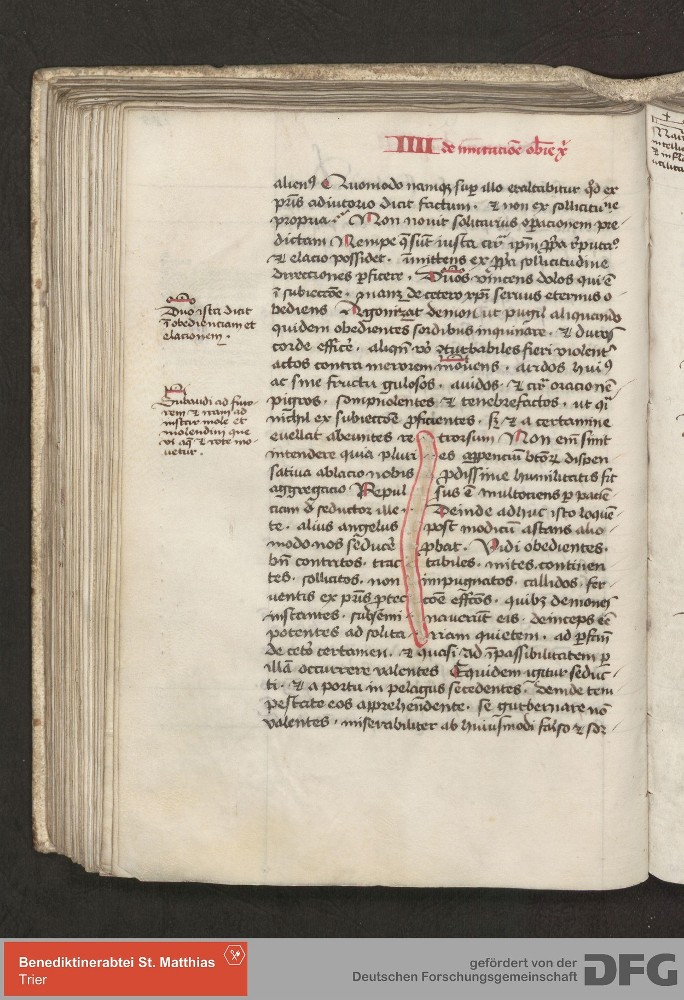 IIII de imitacōe obiē χ̄
alien⁹ Quomodo namqʒ sup̄ illo exaltabitur qd̓ ex
pr̄is adiutorio dicit factum · ⁊ non ex sollicitu⸗
propria · Non nouit solitarius op̄acionem pre
dictam Nempe
⁊ elacio possidet · īmittens ex
directiones ꝑficere · Duos vincens dolos qui ē
ī subiectōe · manʒ de cetero xp̄i seruus eternus o
bediens Agonizat demon ut pugil aliquando
quidem obedientes sordibus inquinare · ⁊ duros
corde efficē · aliqn̄ vō ꝯturbabiles fieri violent
actos contra merorem mouens · aridos hui⁹
ac sine fructu gulosos · auidos · ⁊ cir̄ oracionē
pigros · sompnolentes ⁊ tenebrefactos · ut qi
nichil ex subiectōe ꝓficientes · sʒ ⁊ a certamine
euellat abeuntes re trorsum Non em̄ sinit
intendere quia pluri es bt̄orʒ dispen
satiua ablacio nobis ꝓdissime humilitatis fit
aggregacio Repul sus ē multociens ꝑ pacie
ciam d̓ seductor ille · Deinde adhuc isto loquē
te · alius angelus post modicū astans alio
modo nos seducē ꝓbat · Vidi obedientes ·
bn̄ contritos · trac tabiles · mites · continen
tes · sollicitos · non impugnatos · callidos · fer
uentis ex pr̄is ꝓtec cōe effc̄os · quibʒ demones
instantes · subsemi nauerūt eis · deinceps eē
potentes ad solita riam quietem · ad ꝑfc̄m
de cetō certamen · ⁊ quasi ad īpassibilitatem ꝑ
illā occurrere valentes Equidem igitur seduc
ti · ⁊ a portu in pelagus secedentes · deinde tem
pestate eos apprehendente · se gubernare nō
valentes · miserabiliter ab huiusmodi falso ⁊ sor
Duo ista dicit
ī obedienciam et
elacionem ·
Subaudi ad furo
rem ⁊ iram ad
instar mole et
molendini que
vi aq̄ ⁊ rote mo
uetur ·
Benediktinerabtei St. Matthias
Trier
gefördert von der
Deutschen Forschungsgemeinschaft
DFG